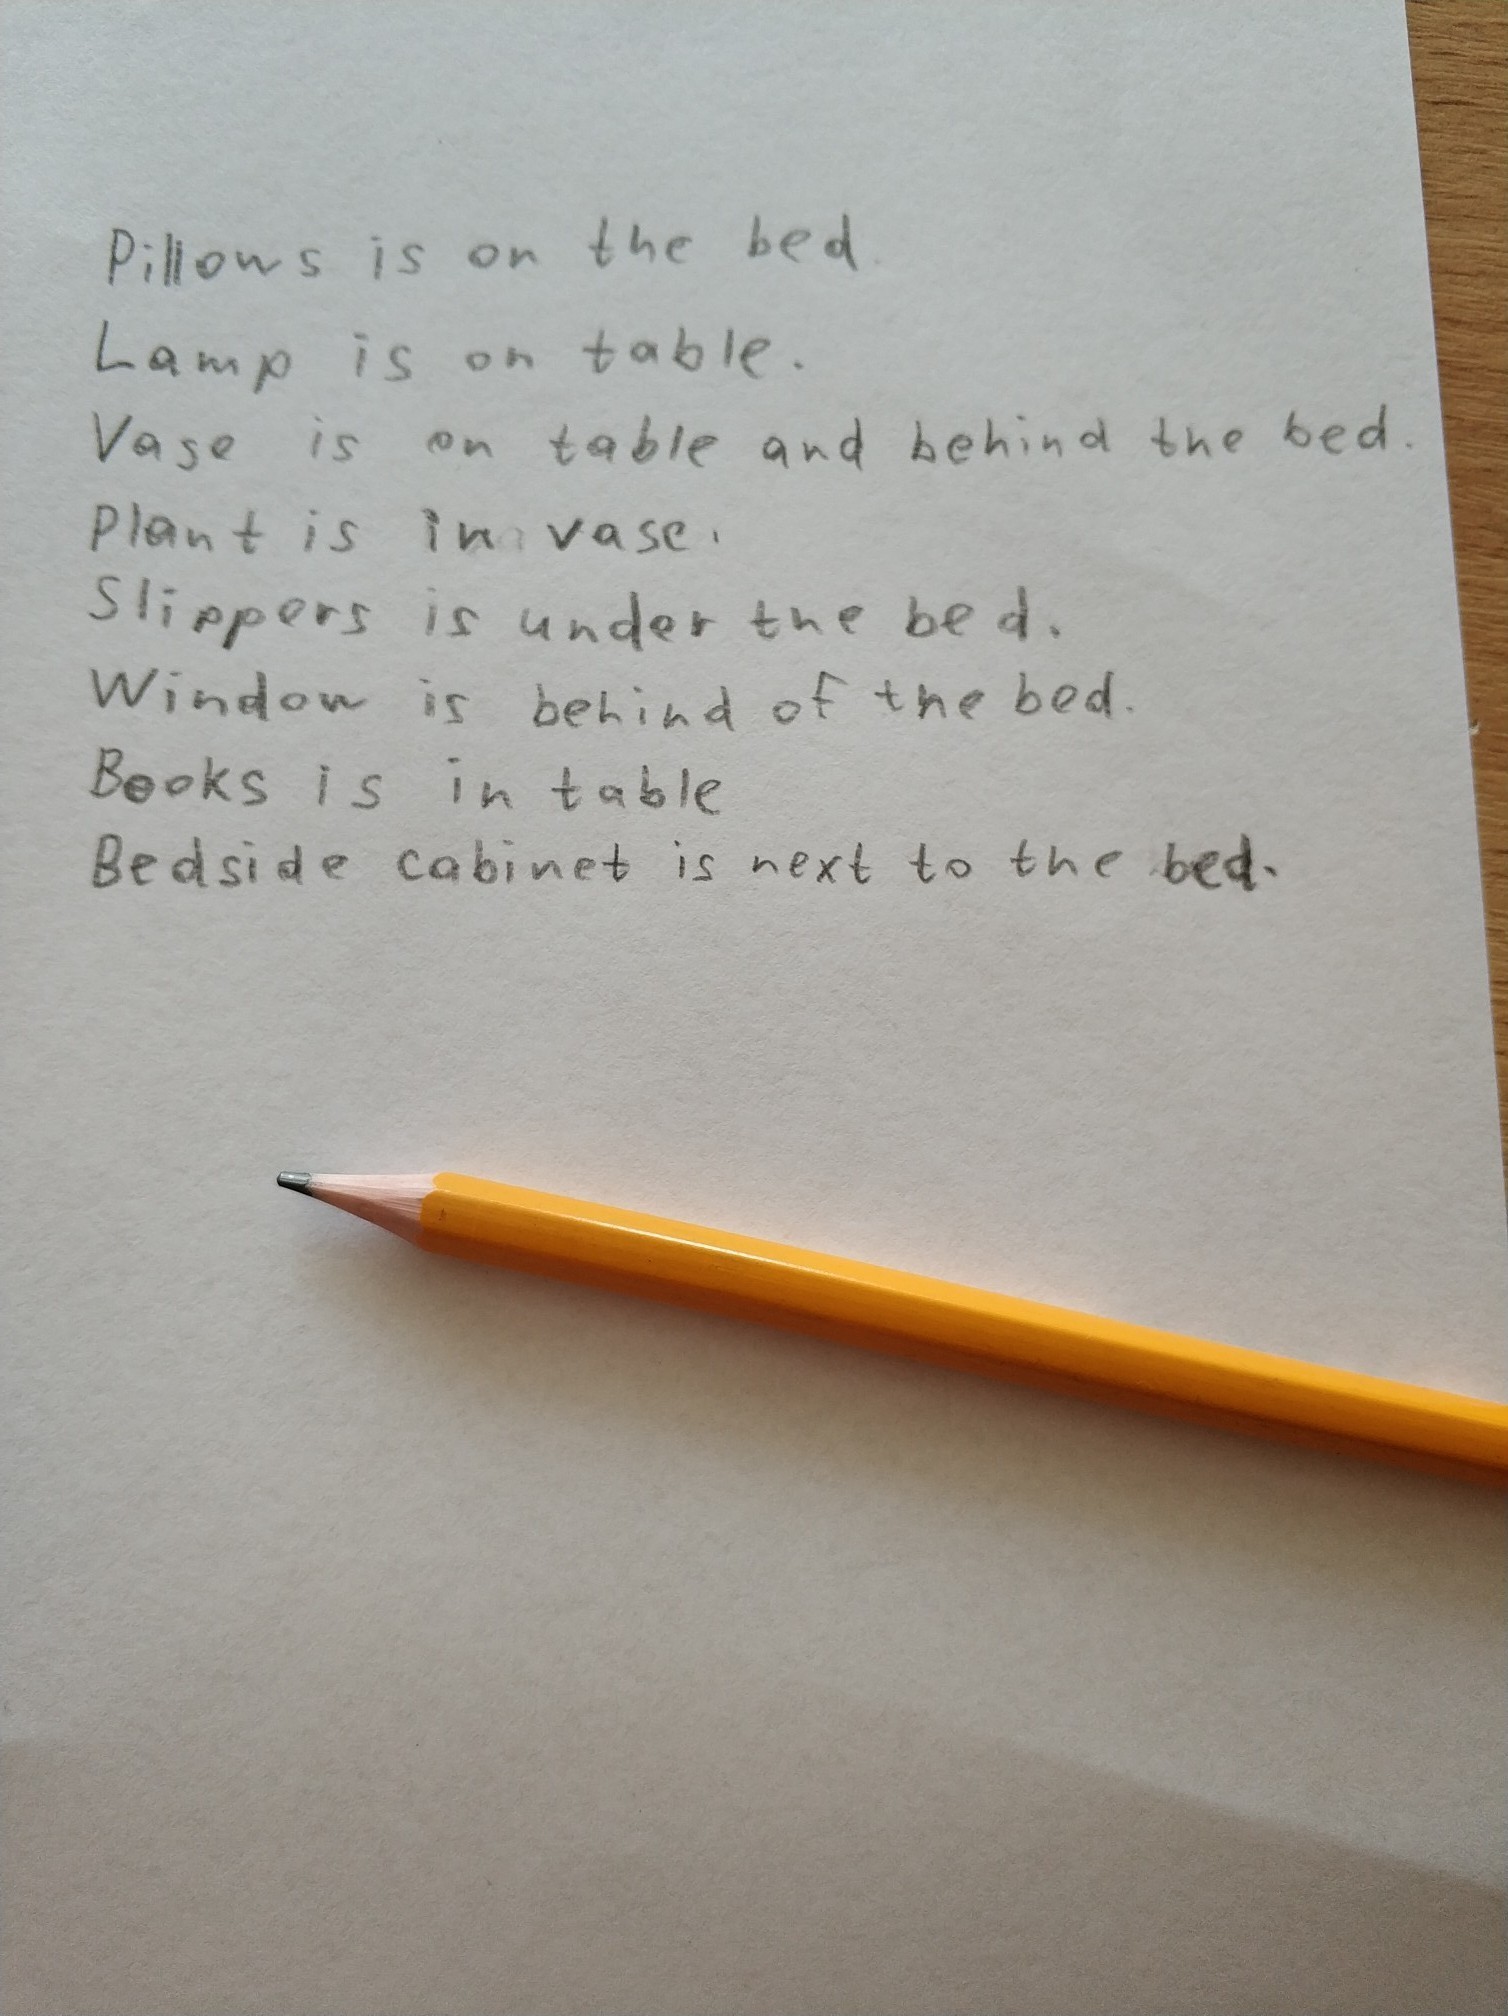 Pillows is on the bed.
Lamp is on table.
Vase is on table and behind the bed.
Plant is in vase.
Slippers is under the bed.
Window is behind of the bed.
Books is in table
Bedside cabinet is next to the bed.